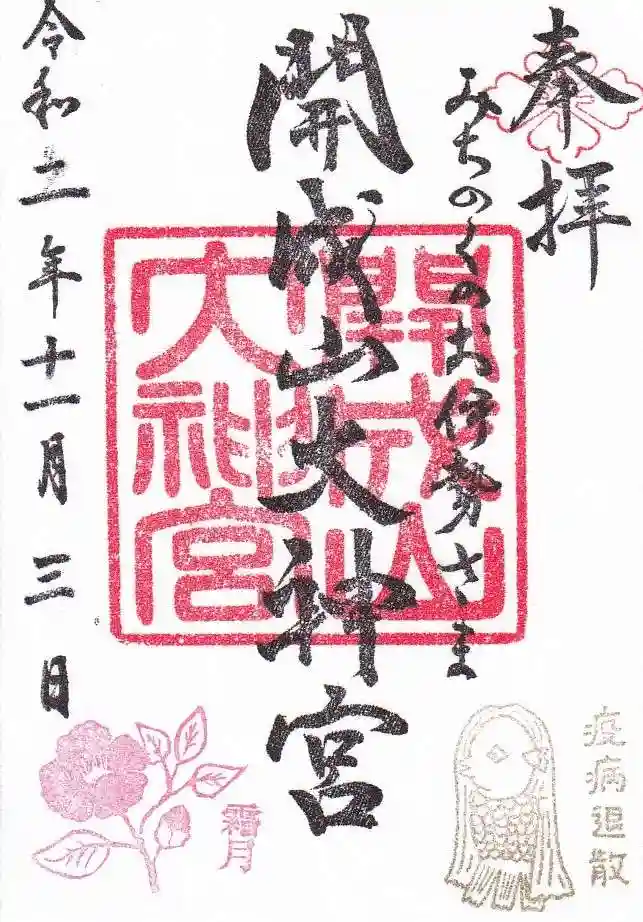 奉拝
みちのくのお伊勢さま
開成山大神宮
開成山
大神宮
令和二年十一月三日
疫病退散
霜月